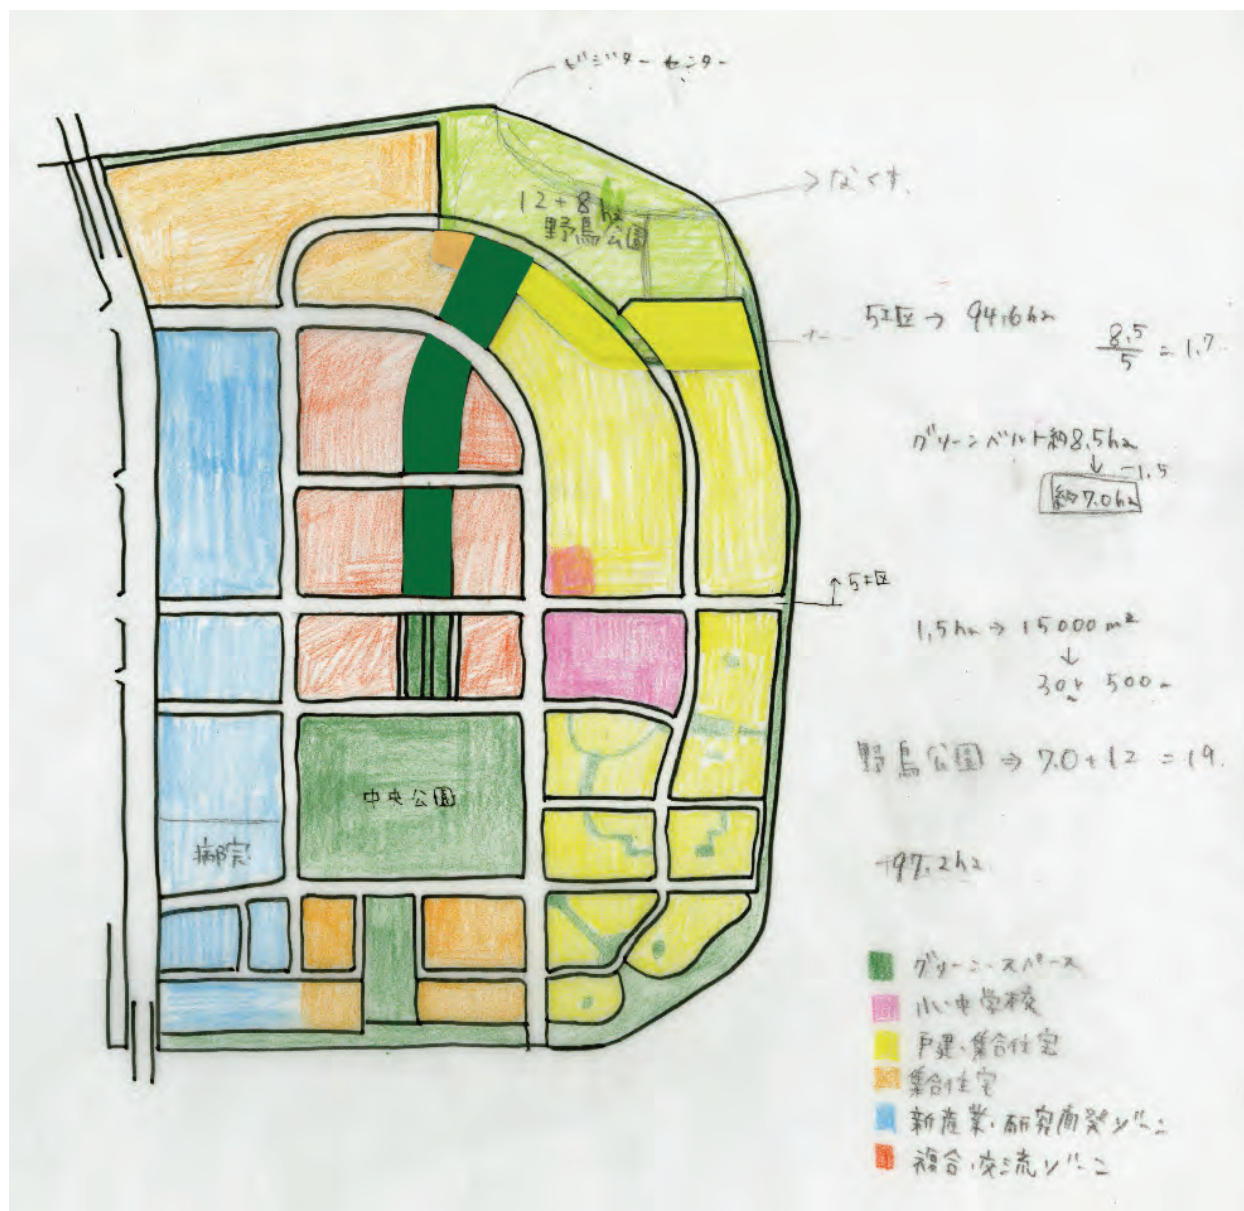 ビジターセンター
12+8ha
野鳥公園
→なくす.
5工区 → 94.6ha
8.5
5
= 1.7
グリーンベルト約8.5ha
↓ -1.5
約7.0ha
↑5工区
1.5ha → 15000m²
↓
500
野鳥公園 ⇒ 7.0+12 = 19.
中央公園
病院
97.2ha
グリーン・スペース
小・中学校
戸建・集合住宅
集合住宅
新産業・研究開発ゾーン
複合・交流ゾーン